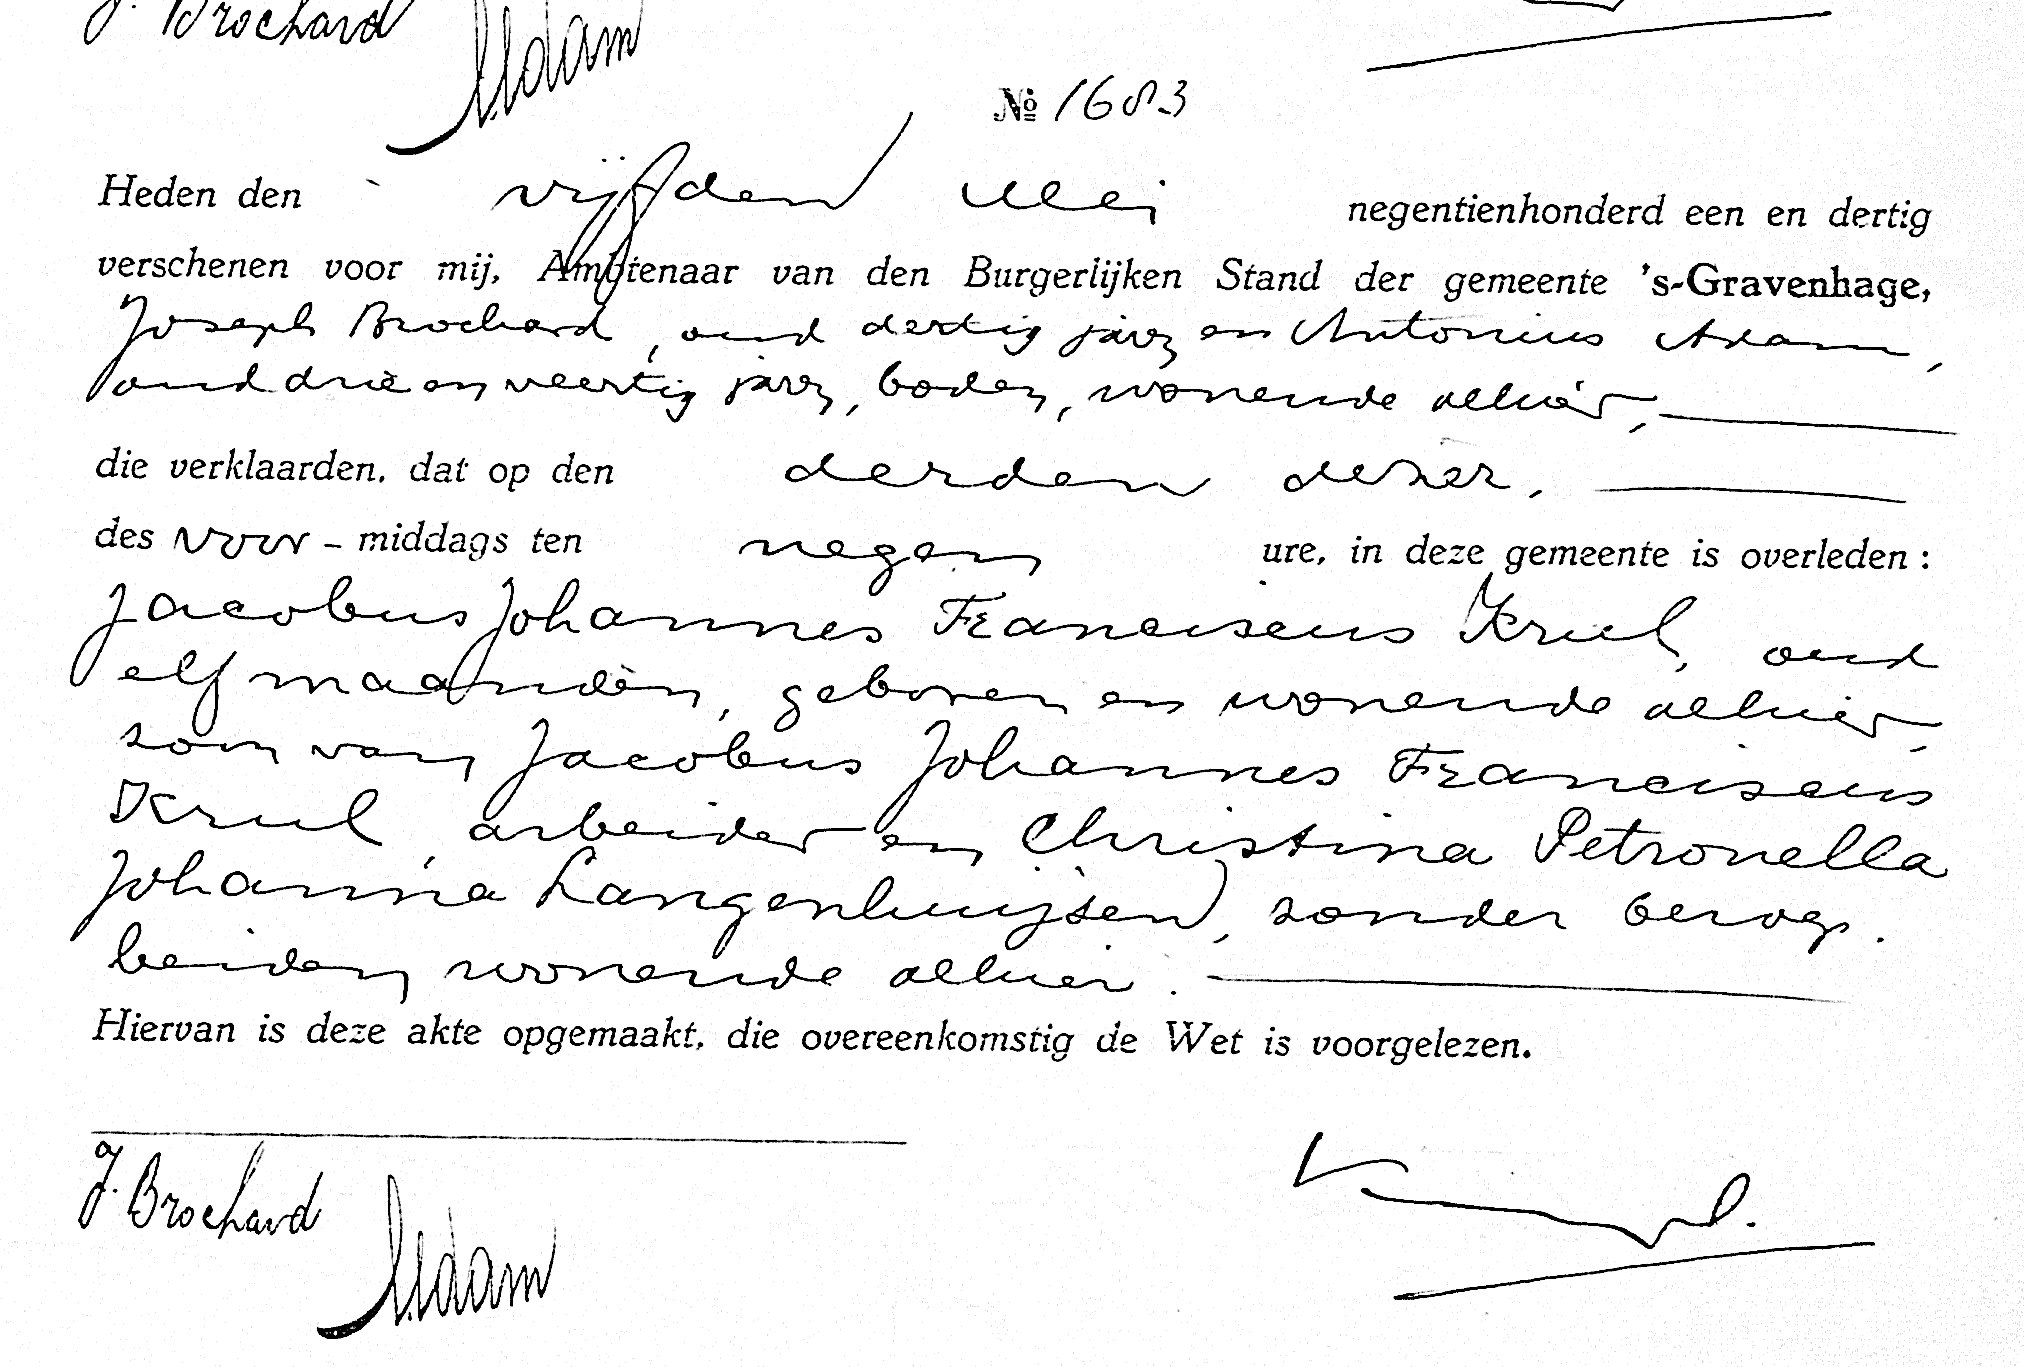 J. Brochard AAdam
№ 1683
Heden den vijfden Mei negentienhonderd een en dertig
verschenen voor mij, Ambtenaar van den Burgerlijken Stand der gemeente 's-Gravenhage,
Joseph Brochard, oud dertig jaar en Antonius Adam,
oud drie en veertig jaar, boden, wonende alhier,
die verklaarden, dat op den derden dezer,
des voor - middags ten negen ure, in deze gemeente is overleden :
Jacobus Johannes Franciscus Krul, oud
elf maanden, geboren en wonende alhier,
zoon van Jacobus Johannes Franciscus
Krul, arbeider en Christina Petronella
Johanna Langenhuijsen, zonder beroep.
beiden wonende alhier.
Hiervan is deze akte opgemaakt, die overeenkomstig de Wet is voorgelezen.
J. Brochard
AAdam